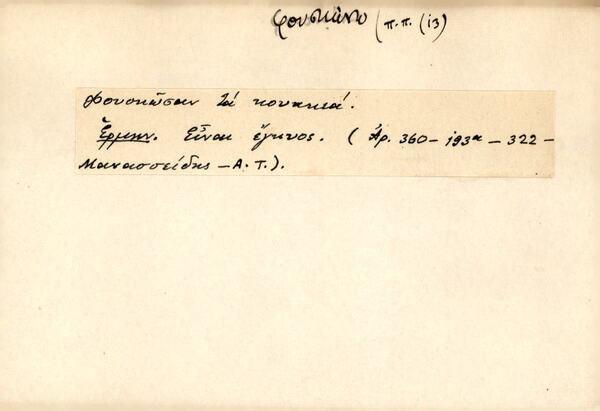 φουσκώνω (π.π. (13)
Φουσκῶσαν τά κουκκιά.
Ἑρμην. Εἶναι ἔγκυος. (Ἀρ. 360-193α-322-
Μανασσείδης-Α.Τ.).